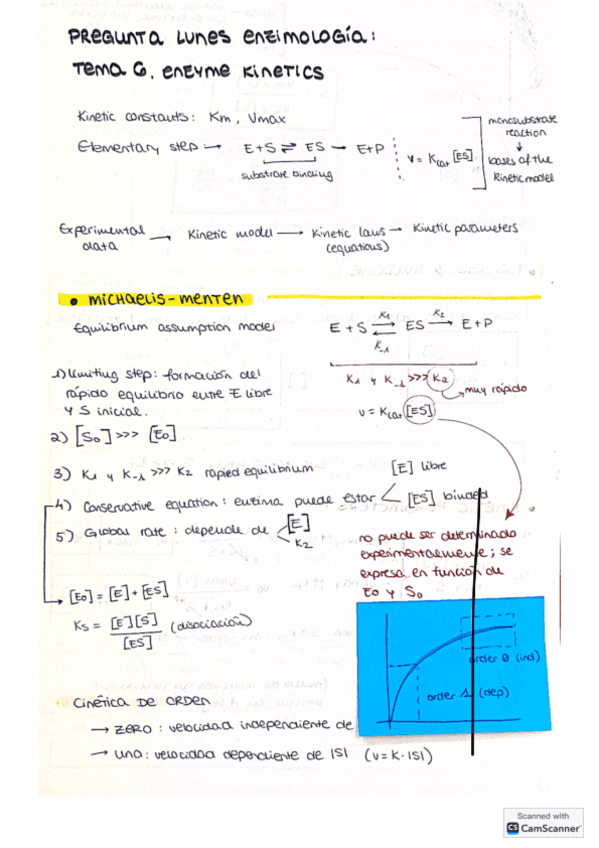 PREGUNTA LUNES ENZIMOLOGÍA:
TEMA 6, ENZYME KINETICS
Kinetic constants: Km, Vmax
Elementary step → E+S ⇌ ES → E+P
substrate binding
v = Kcat [ES]
monosubstrate
reaction
↓
bases of the
Kinetic model
Experimental
data → Kinetic model → Kinetic laws → Kinetic parameters
(equations)
• MICHAELIS-MENTEN
Equilibrium assumption model
E + S ⇌ ES → E+P
K1 K2
K-1
K1 y K-1 >>> K2
muy rápido
v = Kcat [ES]
1) Limiting step: formación del
rápido equilibrio entre E libre
y S inicial.
2) [S0] >>> [E0]
3) K1 y K-1 >>> K2 rapied equilibrium
4) Conservative equation: enzima puede estar < [E] libre
[ES] binded
5) Global rate: depende de < [E]
K2
no puede ser determinado
experimentalmente; se
expresa en función de
E0 y S0
[E0] = [E] + [ES]
Ks = [E][S] / [ES] (disociación)
order 0 (ind)
order 1 (dep)
• CINÉTICA DE ORDEN
→ ZERO: velocidad independiente de
→ UNO: velocidad dependiente de |S| (v = K·|S|)
Scanned with
CS CamScanner